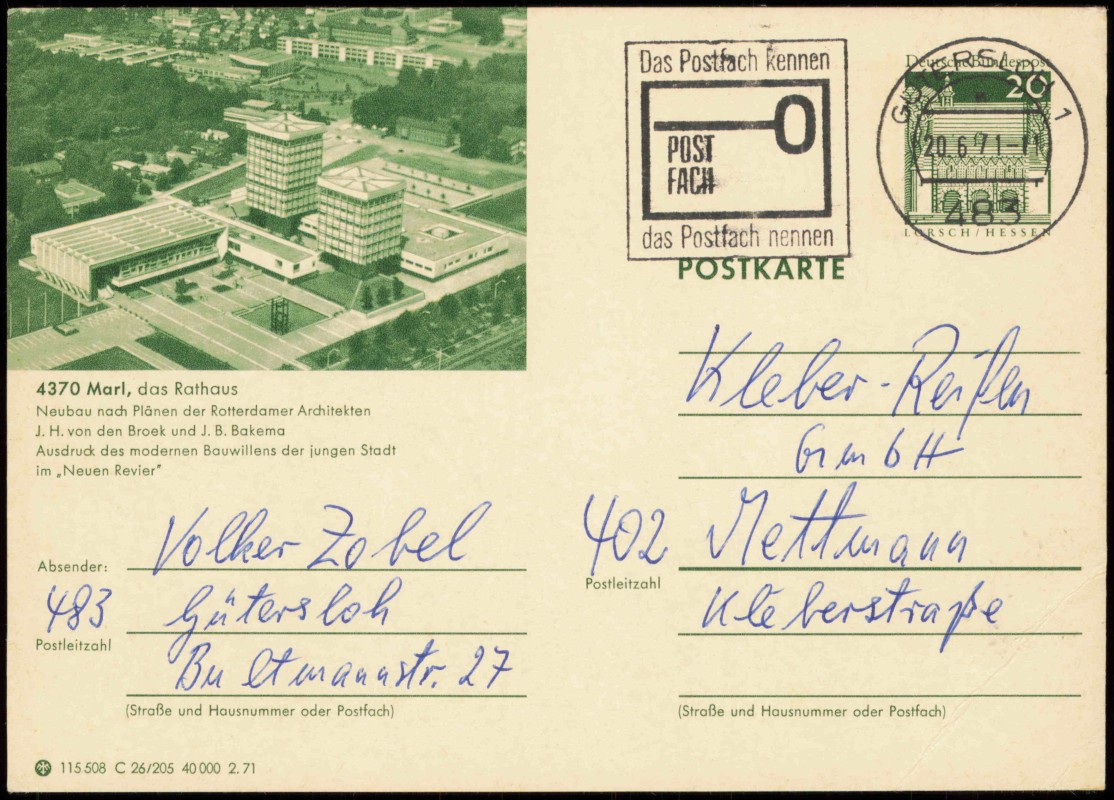 Das Postfach kennen
POST
FACH
das Postfach nennen
Deutsche Bundespost
20
GÜTERSLOH 1
20.6.71-11
483
LORSCH/HESSEN
POSTKARTE
4370 Marl, das Rathaus
Neubau nach Plänen der Rotterdamer Architekten
J. H. von den Broek und J. B. Bakema
Ausdruck des modernen Bauwillens der jungen Stadt
im „Neuen Revier"
Absender:
Volker Zobel
483 Gütersloh
Postleitzahl
Bultmannstr. 27
(Straße und Hausnummer oder Postfach)
Kleber-Reifen
GmbH
402 Mettmann
Postleitzahl
Kleberstraße
(Straße und Hausnummer oder Postfach)
115 508 C 26/205 40 000 2.71